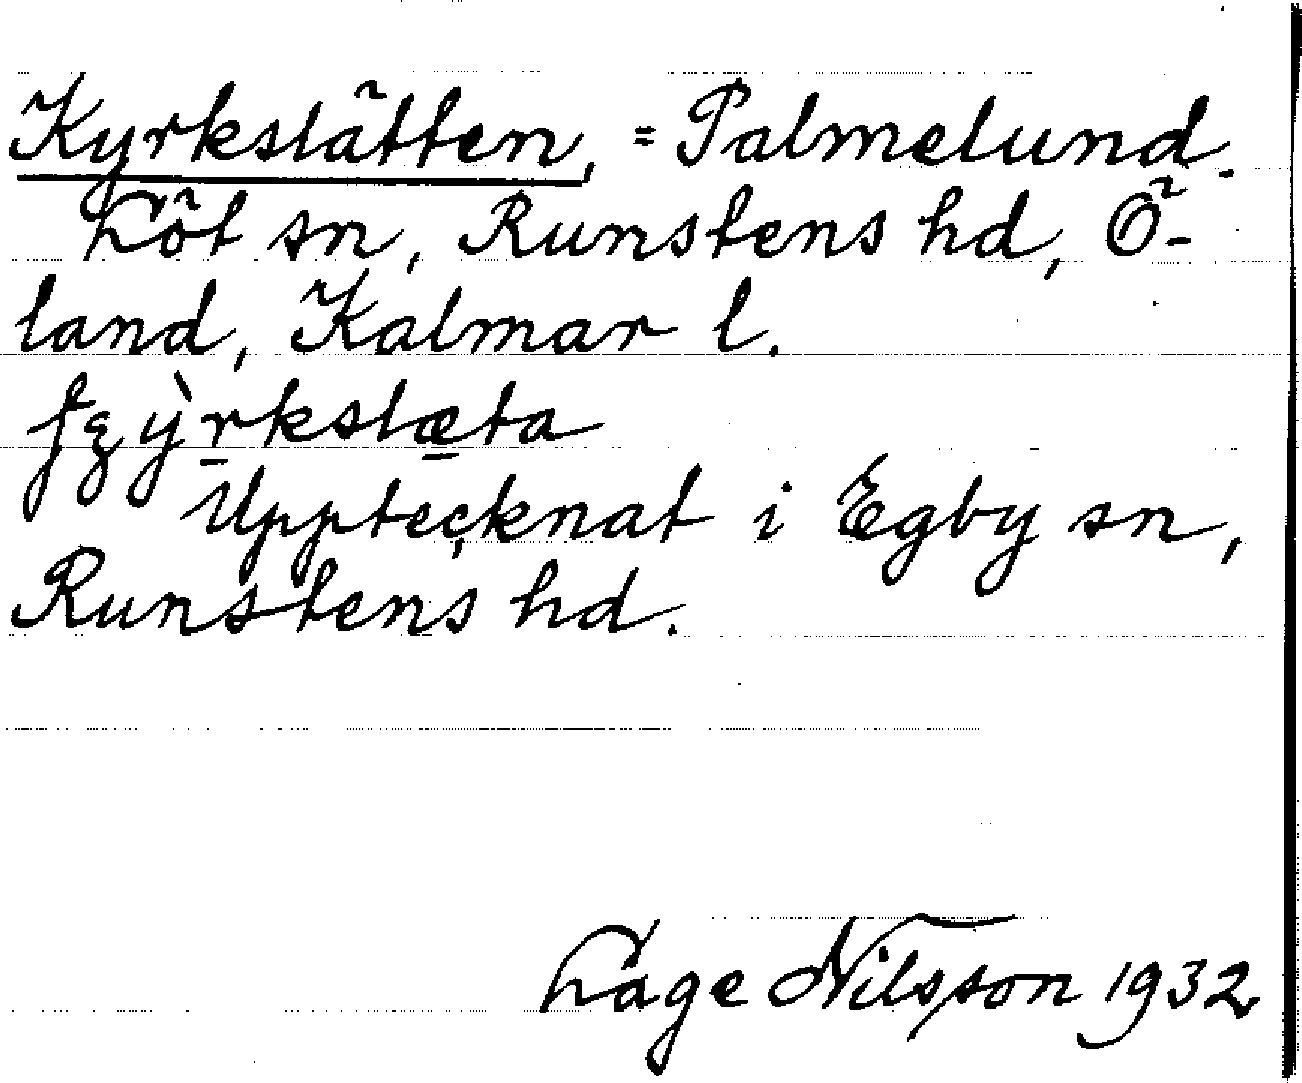 Kyrkslätten, = Palmelund.
Löt sn, Runstens hd, Ö-
land, Kalmar l.
Upptecknat i Egby sn,
Runstens hd.
Lage Nilsson 1932